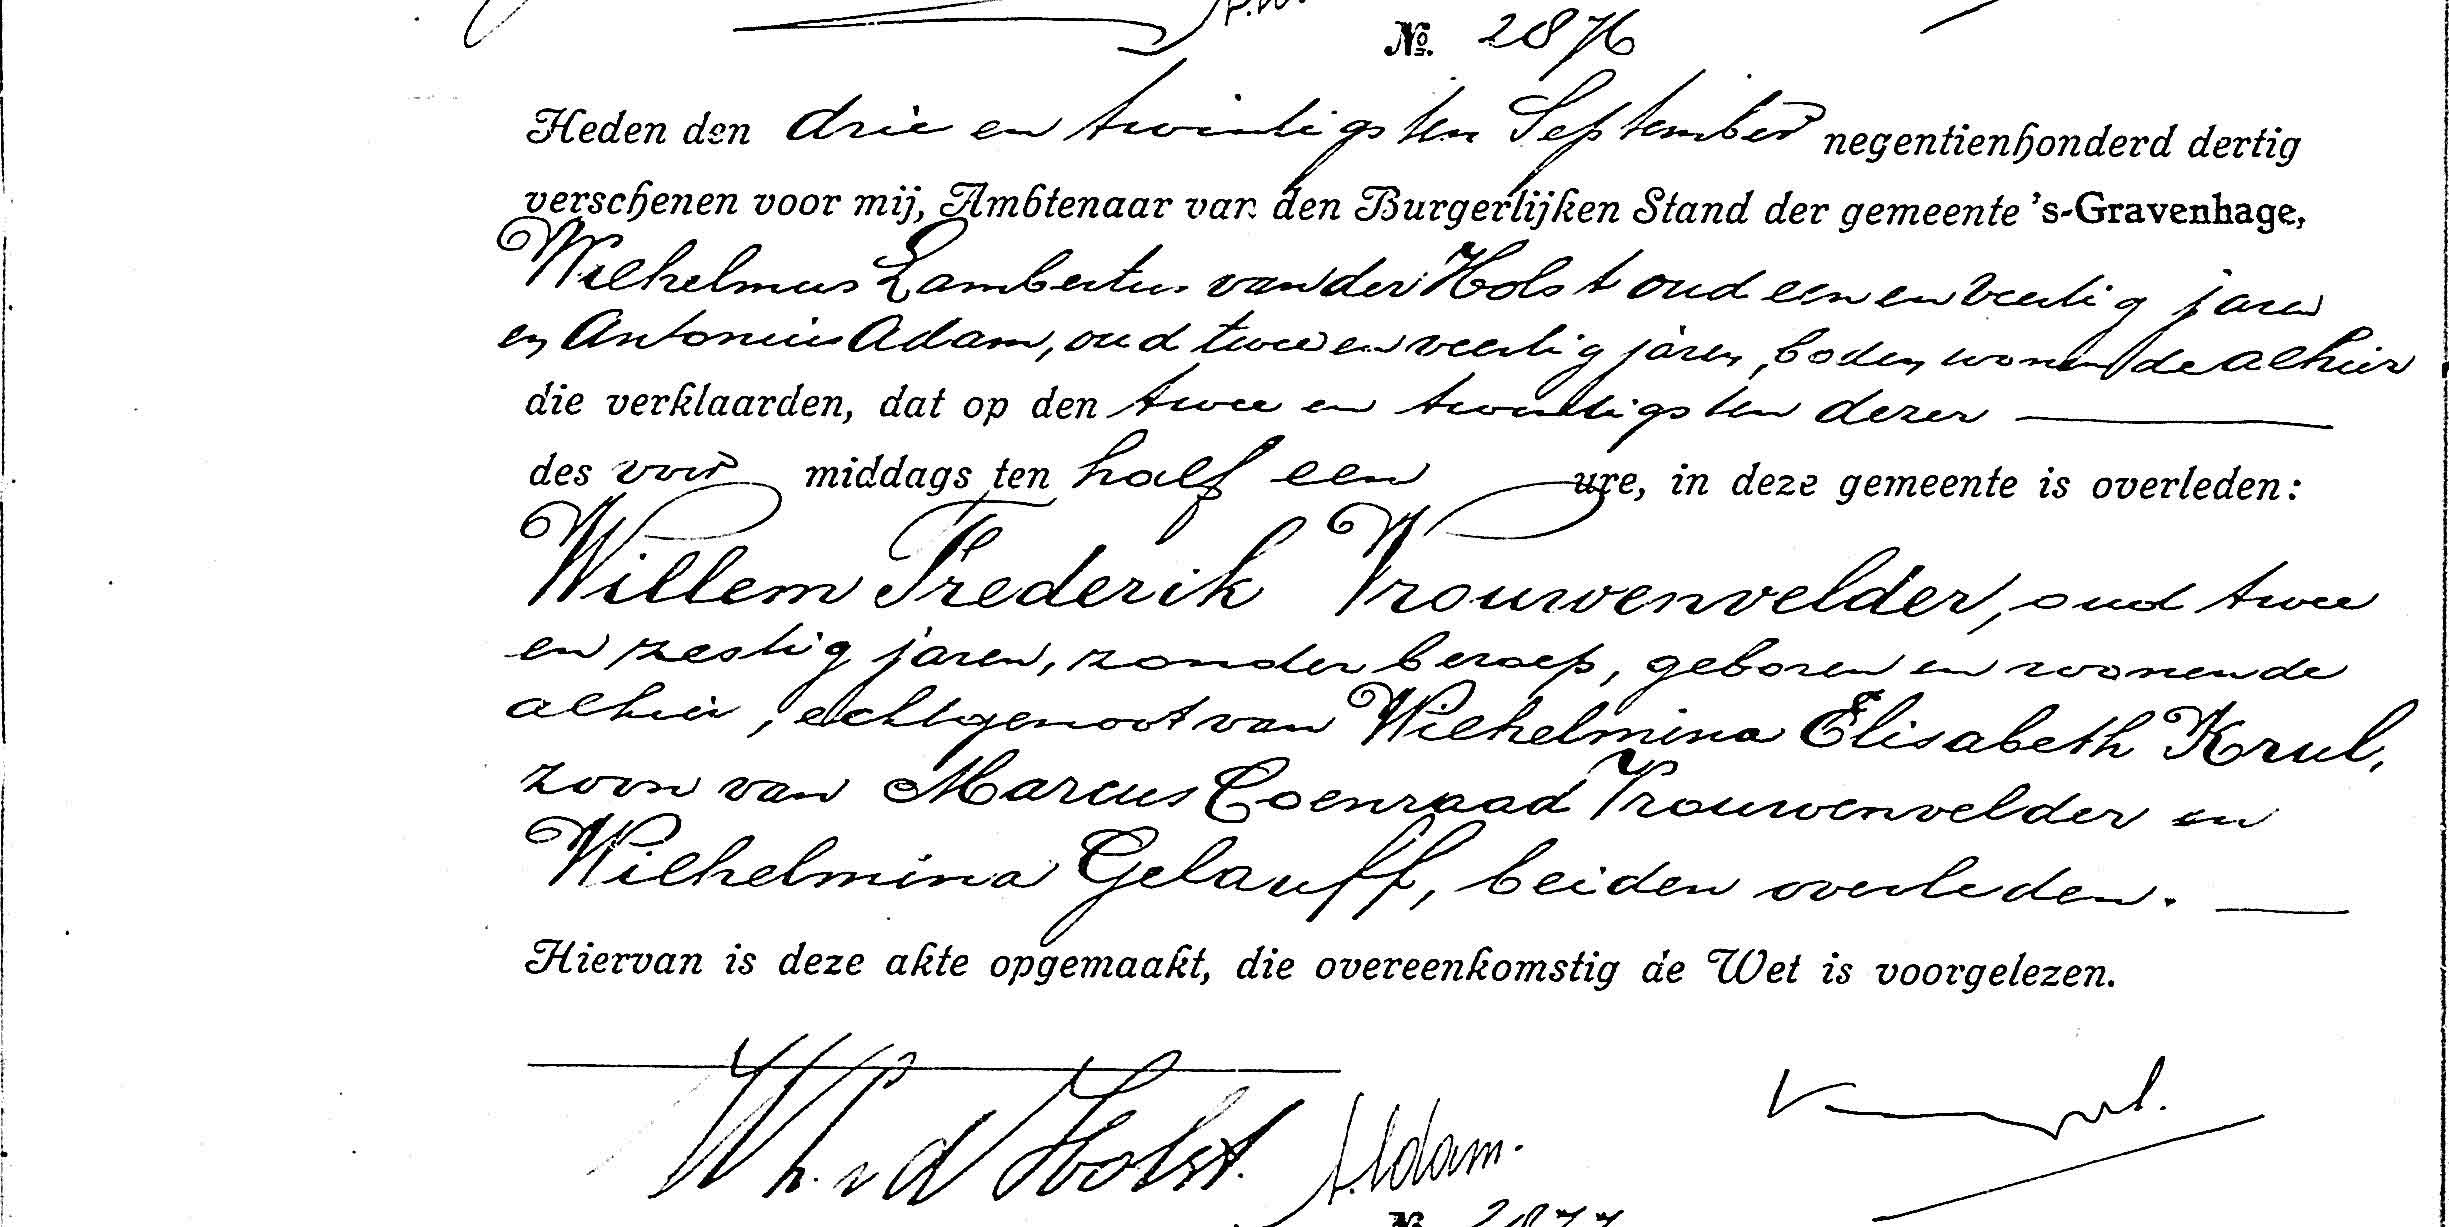 №. 2876
Heden den drie en twintigsten September negentienhonderd dertig
verschenen voor mij, Ambtenaar van den Burgerlijken Stand der gemeente 's-Gravenhage,
Wilhelmus Lambertus van der Holst oud een en veertig jaren
en Antonius Adam, oud twee en veertig jaren, boden, wonende alhier
die verklaarden, dat op den twee en twintigsten dezer
des voor middags ten half een ure, in deze gemeente is overleden:
Willem Frederik Vrouwenvelder, oud twee
en zestig jaren, zonder beroep, geboren en wonende
alhier, echtgenoot van Wilhelmina Elisabeth Krul,
zoon van Marcus Coenraad Vrouwenvelder en
Wilhelmina Gelauff, beiden overleden.
Hiervan is deze akte opgemaakt, die overeenkomstig de Wet is voorgelezen.
W L. v d Holst. A. Adam.
№ 2877